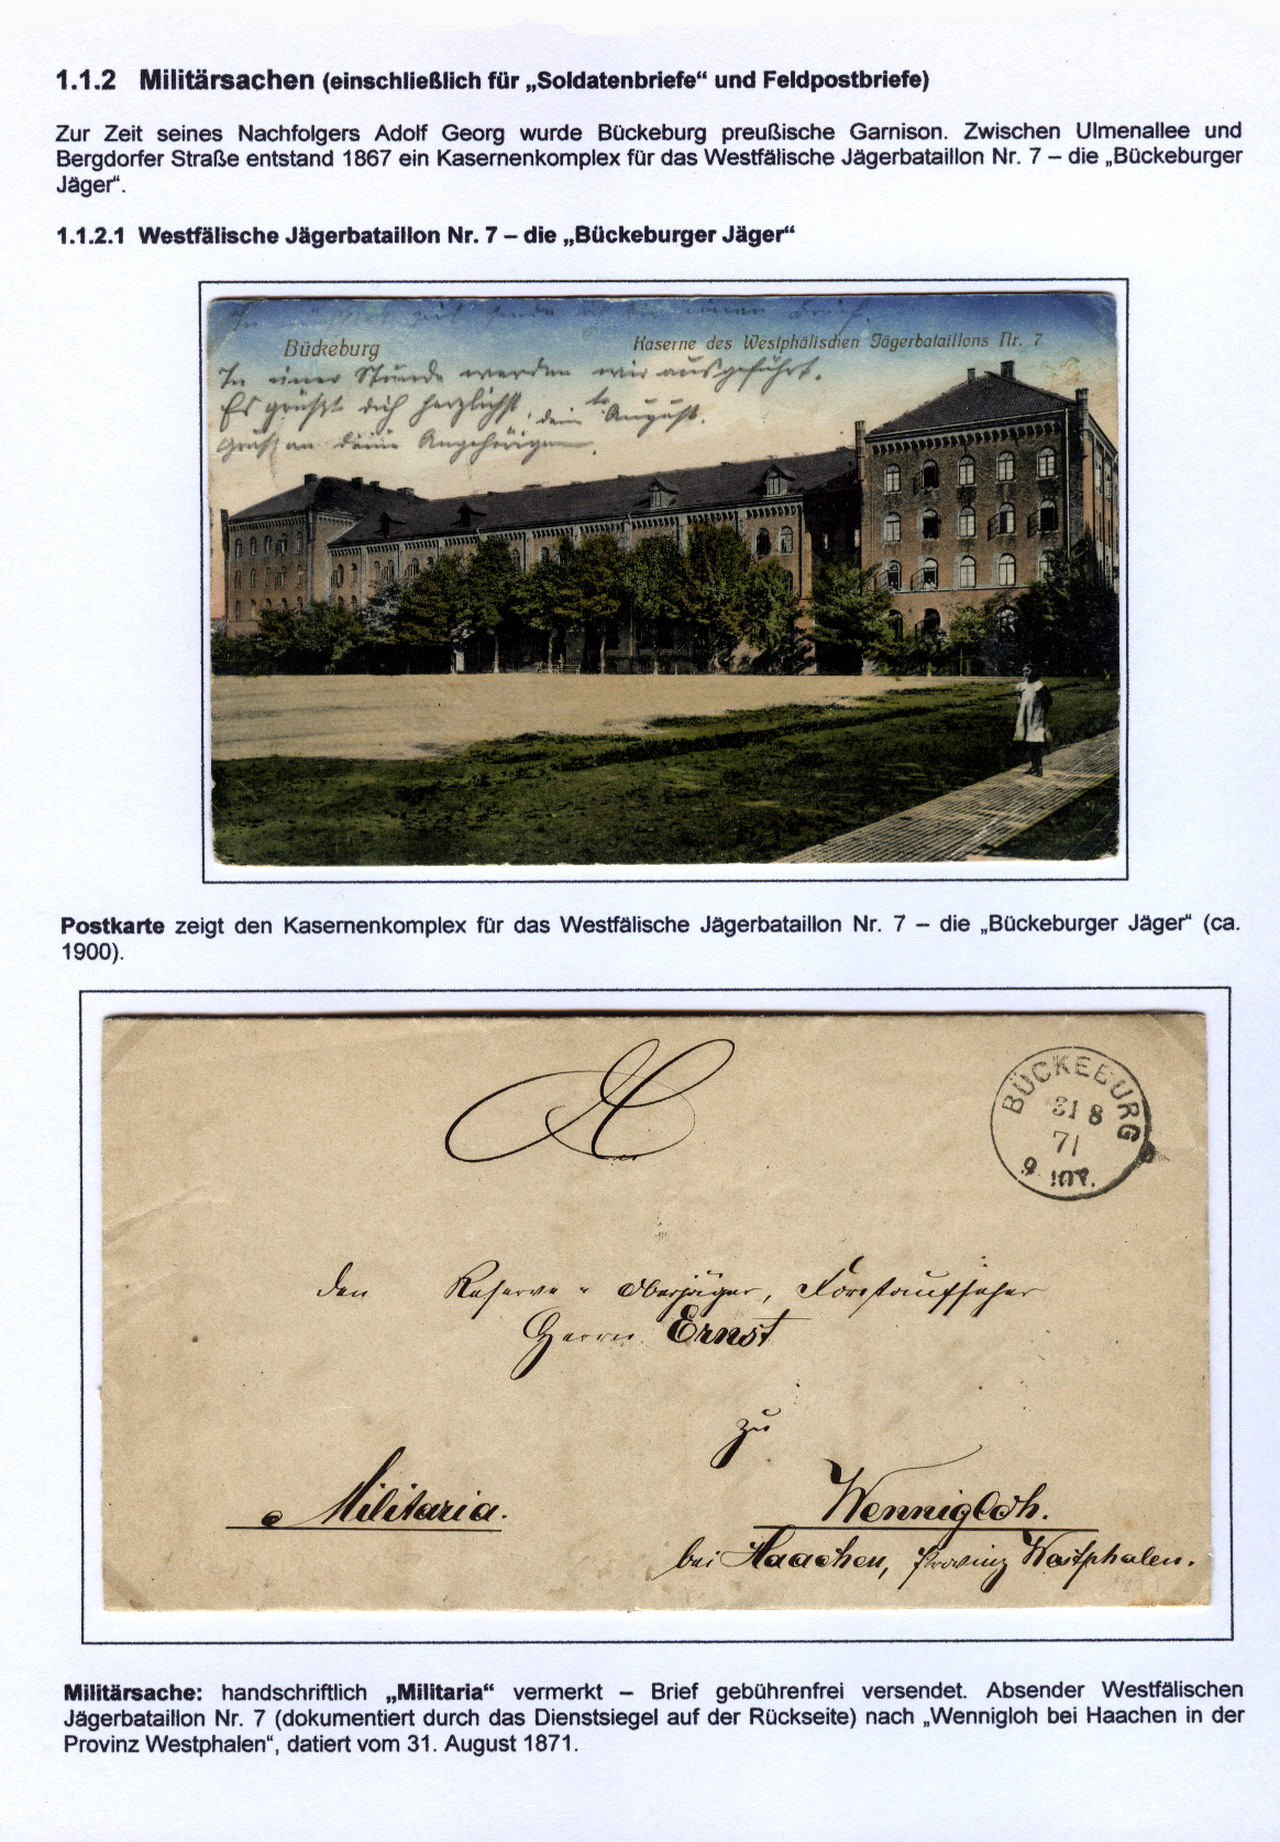 1.1.2 Militärsachen (einschließlich für „Soldatenbriefe“ und Feldpostbriefe)
Zur Zeit seines Nachfolgers Adolf Georg wurde Bückeburg preußische Garnison. Zwischen Ulmenallee und
Bergdorfer Straße entstand 1867 ein Kasernenkomplex für das Westfälische Jägerbataillon Nr. 7 – die „Bückeburger
Jäger“.
1.1.2.1 Westfälische Jägerbataillon Nr. 7 – die „Bückeburger Jäger“
In nächster Zeit sende ich dir einen Brief.
Bückeburg
Kaserne des Westphälischen Jägerbataillons Nr. 7
In einer Stunde werden wir ausgeführt.
Es grüßt dich herzlichst, dein August.
Gruß an deine Angehörigen.
Postkarte zeigt den Kasernenkomplex für das Westfälische Jägerbataillon Nr. 7 – die „Bückeburger Jäger“ (ca.
1900).
BÜCKEBURG
31 8
71
9
den Reserve-Oberjäger, Forstaufseher
Herrn Ernst
zu
Militaria.
Wennigloh.
bei Haachen, Provinz Westphalen.
Militärsache: handschriftlich „Militaria“ vermerkt – Brief gebührenfrei versendet. Absender Westfälischen
Jägerbataillon Nr. 7 (dokumentiert durch das Dienstsiegel auf der Rückseite) nach „Wennigloh bei Haachen in der
Provinz Westphalen“, datiert vom 31. August 1871.